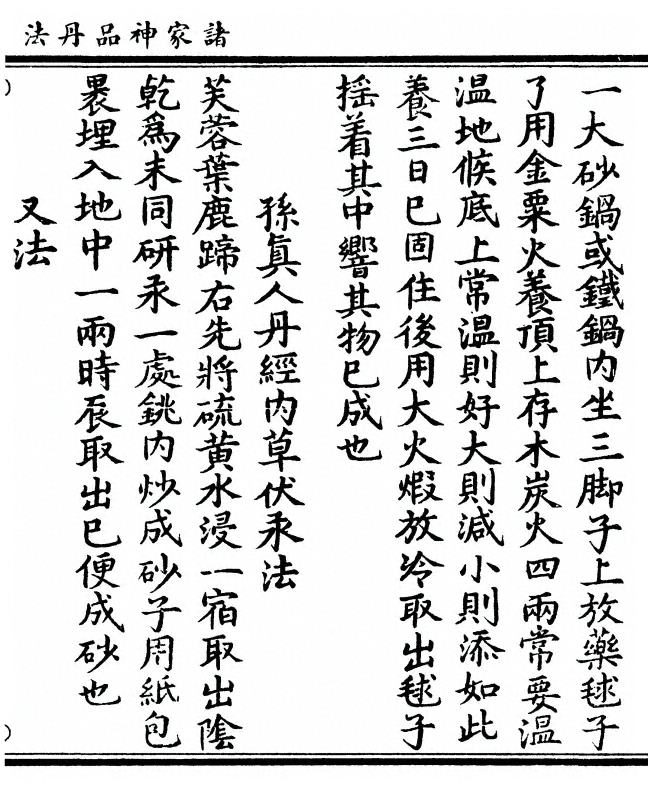 諸家神品丹法
一大砂鍋或鐵鍋内坐三脚子上放藥毬子
了用金粟火養頂上存木炭火四兩常要溫
溫地候底上常溫則好大則減小則添如此
養三日已固住後用大火煆放冷取出毬子
揺着其中響其物已成也
孫眞人丹經内草伏汞法
芙蓉葉鹿蹄右先將硫黄水浸一宿取出隂
乾爲末同研汞一處銚内炒成砂子用紙包
裹埋入地中一兩時辰取出已便成砂也
又法